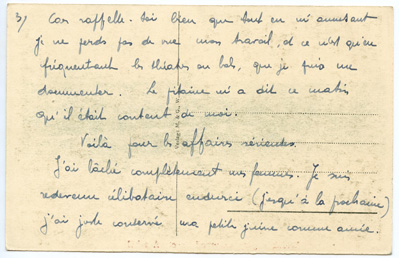 3)
Car rappelle-toi bien que tout en m'amusant
je ne perds pas de vue mon travail, et ce n'est qu'en
fréquentant les théâtres ou bals, que je puis me
documenter. Le pitaine m'a dit ce matin
qu'il était content de moi.
Voilà pour les affaires sérieuses.
J'ai lâché complètement mes femmes. Je suis
redevenu célibataire endurci (jusqu'à la prochaine)
j'ai juste conservé ma petite comme amie.